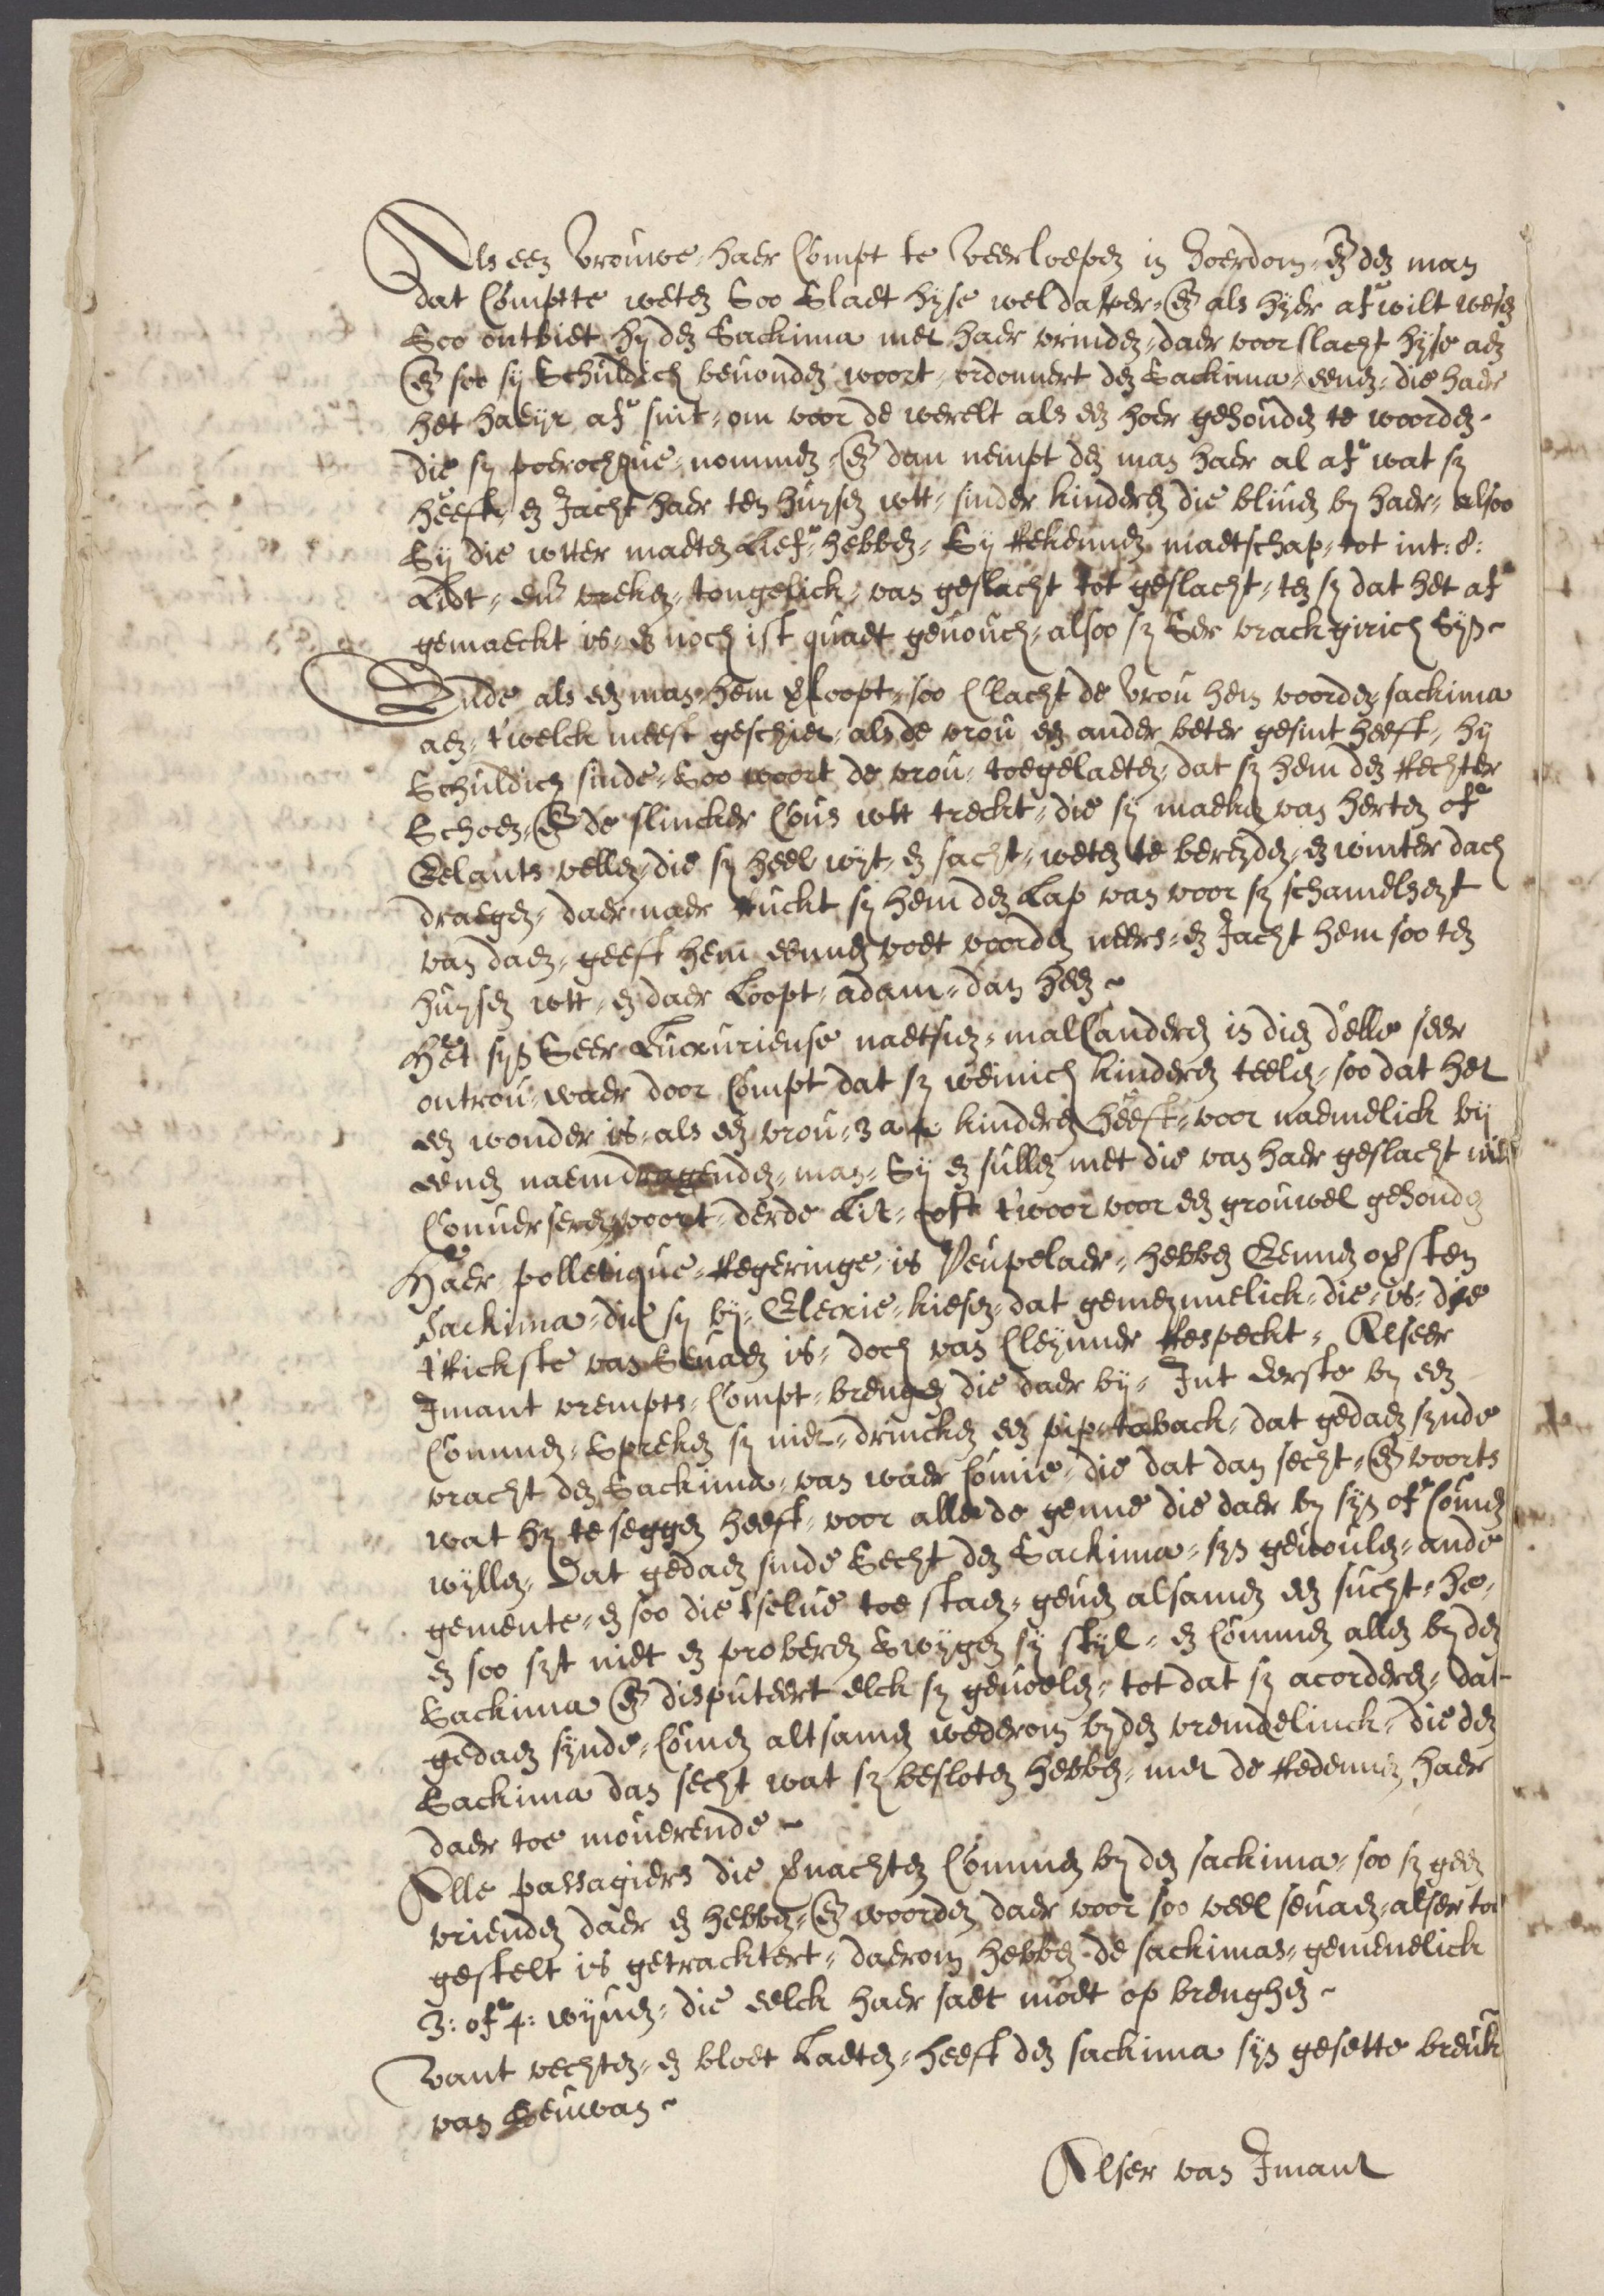 Als een vrouwe, haer Compt te veerloepen in hoerdom, en den man
dat Compt te weten Soo Slaet hyse wel dapper, en als hyder af wilt wesen
Soo ontbiet hy den Sackima met haer vrinden, daer voor clacht hyse aen
en soo sy Schuldich bevonden woort, ordonnert den Sackima, eenen, die haer
het haeyr af snit, om voor de werelt als een hoer gehouden te woorden,
die sy poerochque, nommen, en dan nempt den man haer al af wat sy
heeft, en Jacht haer ten huysen wtt, sinder kinderen die bliven by haer, alsoo
Sy die wtter maeten Lief, hebben, Sy Rekennen maetschap, tot int: 8:
Lidt, en vreken, tongelick, van geslacht tot geslacht, ten sy dat het af
gemaeckt is, en noch ist quaet genouch, alsoo sy Seer vrackgirich Syn
Ende als een man, hem verloopt, soo Clacht de vrou hem voorden, sackima
aen, t'welck meest geschiet, als de vrou een ander beter gesint heeft, hy
Schuldich sinde, Soo woort de vrou, toegelaeten, dat sy hem den Rechter
Schoen, en de slincker Cous wtt treckt, die sy maeken van herten of
Eelants vellen, die sy heel wyt, en sacht, weten te bereyden, en winter dach
draegen, daer naer Ruckt sy hem den Lap van voor sy schamelheyt
van daen, geeft hem eennen voet voorden neers, en Jacht hem soo ten
huysen wtt, en daer Loopt, adam, dan heen
Het syn Seer Luxuriense naetsien, malCanderen in dien delle seer
ontrou, waer door Compt dat sy weinich kinderen teelen, soo dat het
een wonder is, als een vrou, 3 a 4 kinderen heeft, voor naemelick by
eenen naemdragenden, man, Sy en sullen met die van haer geslacht niet
Converseren voort, derde Lit, oft t'woor voor een grouwel gehouden
Haer polletique, Regeringe, is Peupelaer, hebben Eennen oversten
Sackima, die sy by, Electie, kiesen, dat gemeynnelick, die, is, die
t'Rickste van Sevaen is, doch van Cleynner Respeckt, Alseer
Jmant vrempts, Compt, brengen die daer by, Int eerste by een
Commen, Spreken sy niet, drincken een pip, taback, dat gedaen synde
vracht den Sackima, van waer Comie, die dat dan secht, en voorts
wat hy te seggen heeft, voor alle de genne die daer by syn of Comen
wyllen, Dat gedaen sinde Secht den Sackima, syn gevoulen, ande
gemente, en soo die t'selve toe staen, geven alsamen een sucht, he,
en soo syt niet en proberen Swygen sy styl, en Commen allen by den
Sackima en disputeert elck sy gevoelen, tot dat sy acorderen, dat
gedaen synde, Comen altsamen wederom byden vremdelinck, die den
Sackima dan secht wat sy besloten hebben, met de Redennen haer
daer toe moverende
Alle passagiers die vernachten Commen by den sackima, soo sy geen
vrienden daer en hebben, en woorden daer voor soo veel sevaen, alser toe
gestelt is getracktert, daerom hebben de sackimas, gemenelick
3: of 4: wyven, die eelck haer saet moet op brenghen
vant vechten, en bloet Laeten, heeft den sackima syn gesette breuk
van Sewan
Alser van Jmant